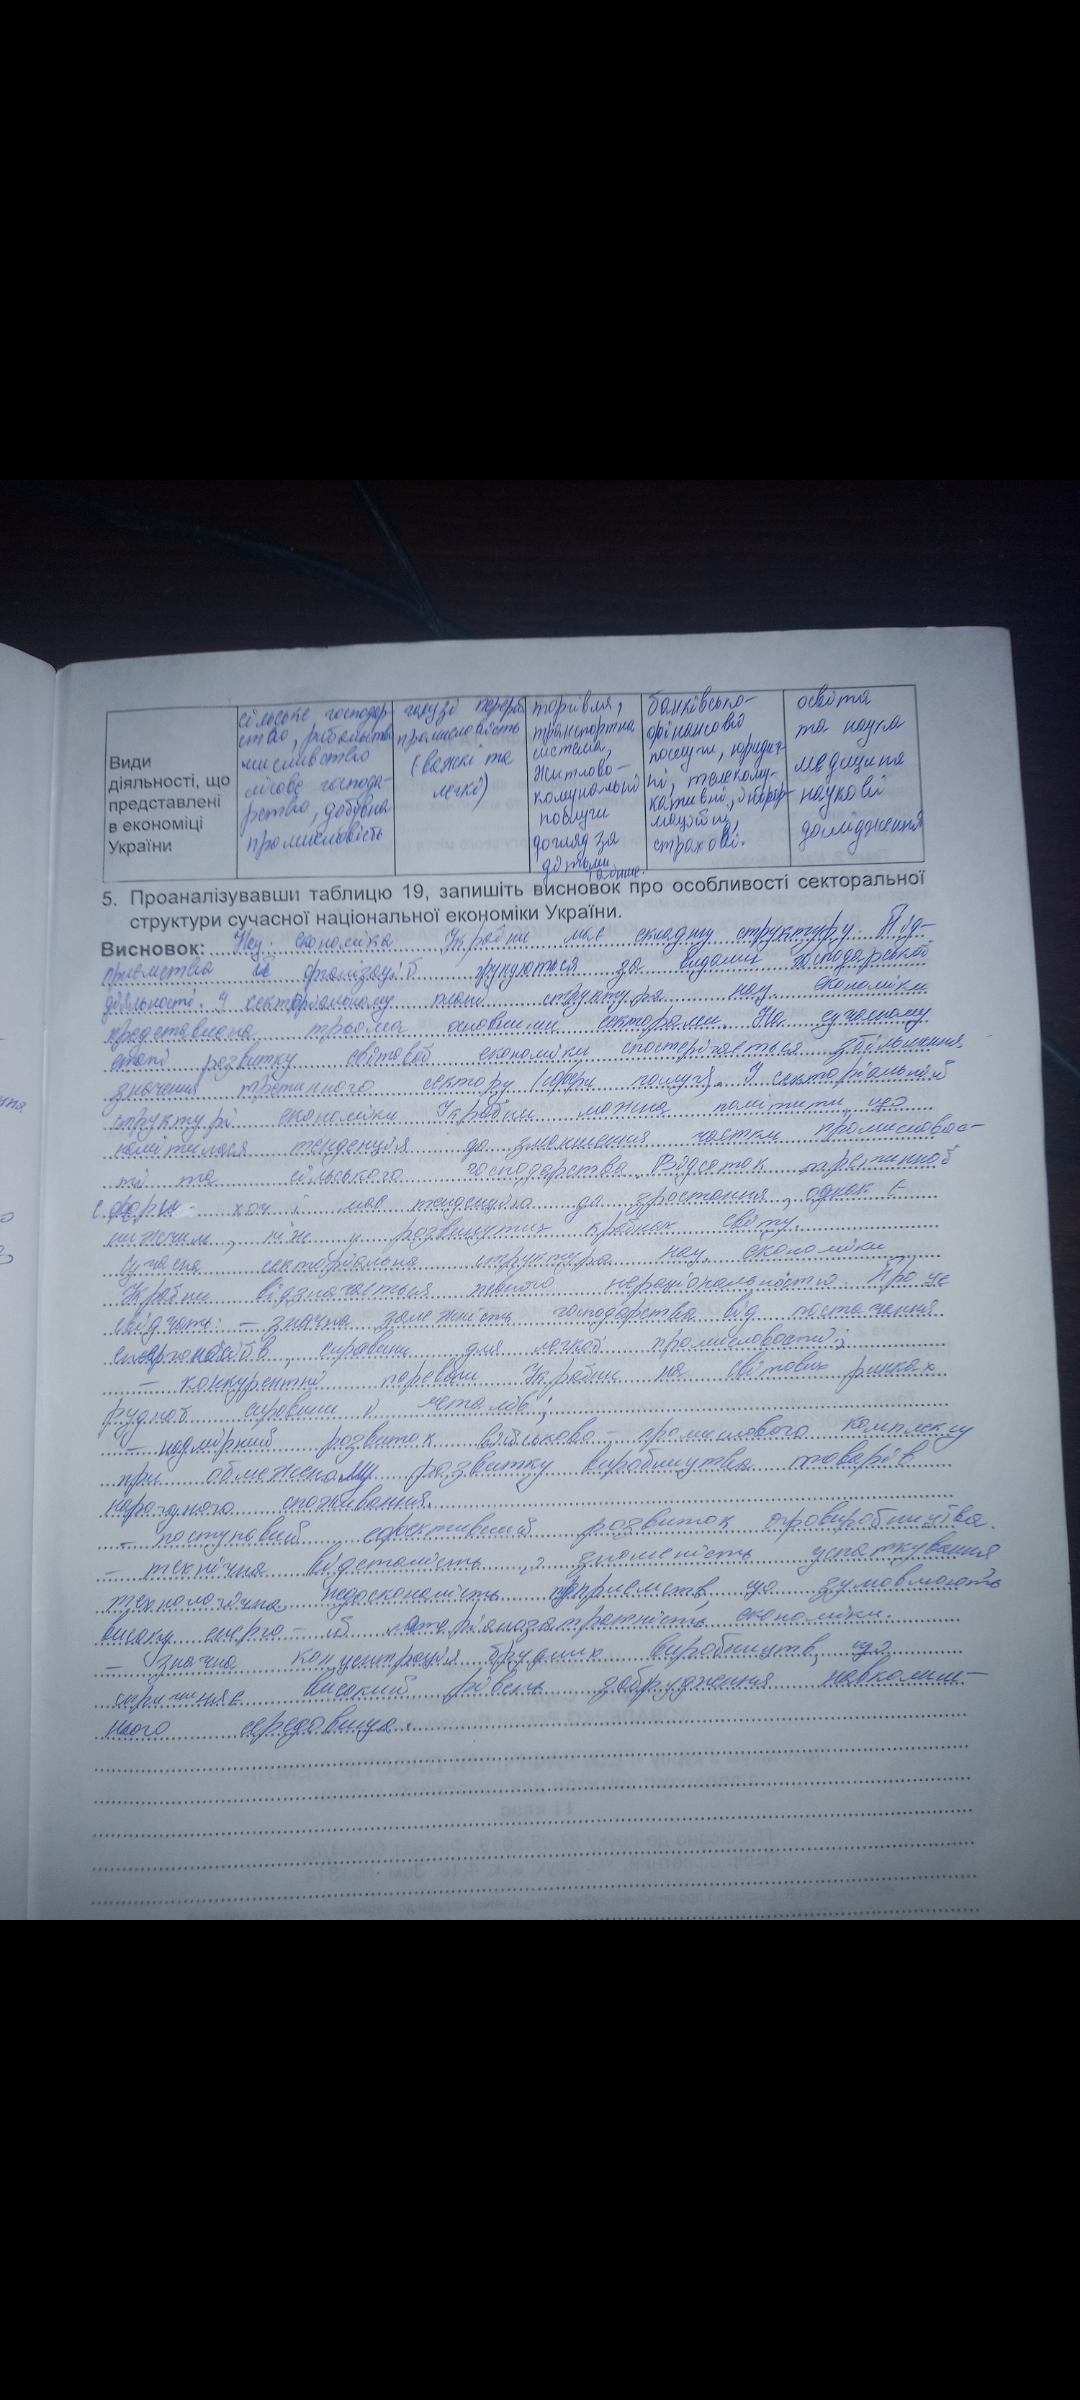 Види
діяльності, що
представлені
в економіці
України
сільське господар-
ство, рибальство
мисливство
лісове господа-
рство, добувна
промисловість
галузі переро
промисловість
(важкі та
легкі)
торгівля,
транспортна
система,
житлово-
комунальні
послуги
догляд за
дітьми
та інше.
банківсько-
фінансові
послуги, юридич-
ні, телекому-
кативні, інфор-
маційні,
страхові.
освіта
та наука
медицина
наукові
дослідження
5. Проаналізувавши таблицю 19, запишіть висновок про особливості секторальної
структури сучасної національної економіки України.
Висновок: Нац. економіка України має складну структуру. Під-
приємства й організації групуються за видами господарської
діяльності. У секторіальному плані структура нац. економіки
представлена трьома основними секторами. На сучасному
етапі розвитку світової економіки спостерігається збільшення
значення третинного сектору (сфери послуг). У секторіальній
структурі економіки України можна помітити що
намітилася тенденція до зменшення частки промисловос-
ті та сільського господарства. Відсоток третинної
сфери хоч і має тенденцію до зростання, однак є
нижчим, ніж у розвинутих країнах світу.
Сучасна секторіальна структура нац. економіки
України відзначається певного нераціональністю. Про це
свідчать: - значна залежність господарства від постачання
енергоносіїв, сировини для легкої промисловості;
- конкурентні переваги України на світових ринках
рудної сировини і металів;
- надмірний розвиток військово-промислового комплексу
при обмеженому розвитку виробництва товарів
народного споживання.
- поступовий ефективний розвиток виробництва.
- технічна відсталість, зношеність устаткування
технологічна недосконалість підприємств, що зумовлюють
високу енерго- й матеріалозатратність економіки.
- значна концентрація брудних виробництв, що
спричиняє високий рівень забруднення навколиш-
нього середовища.